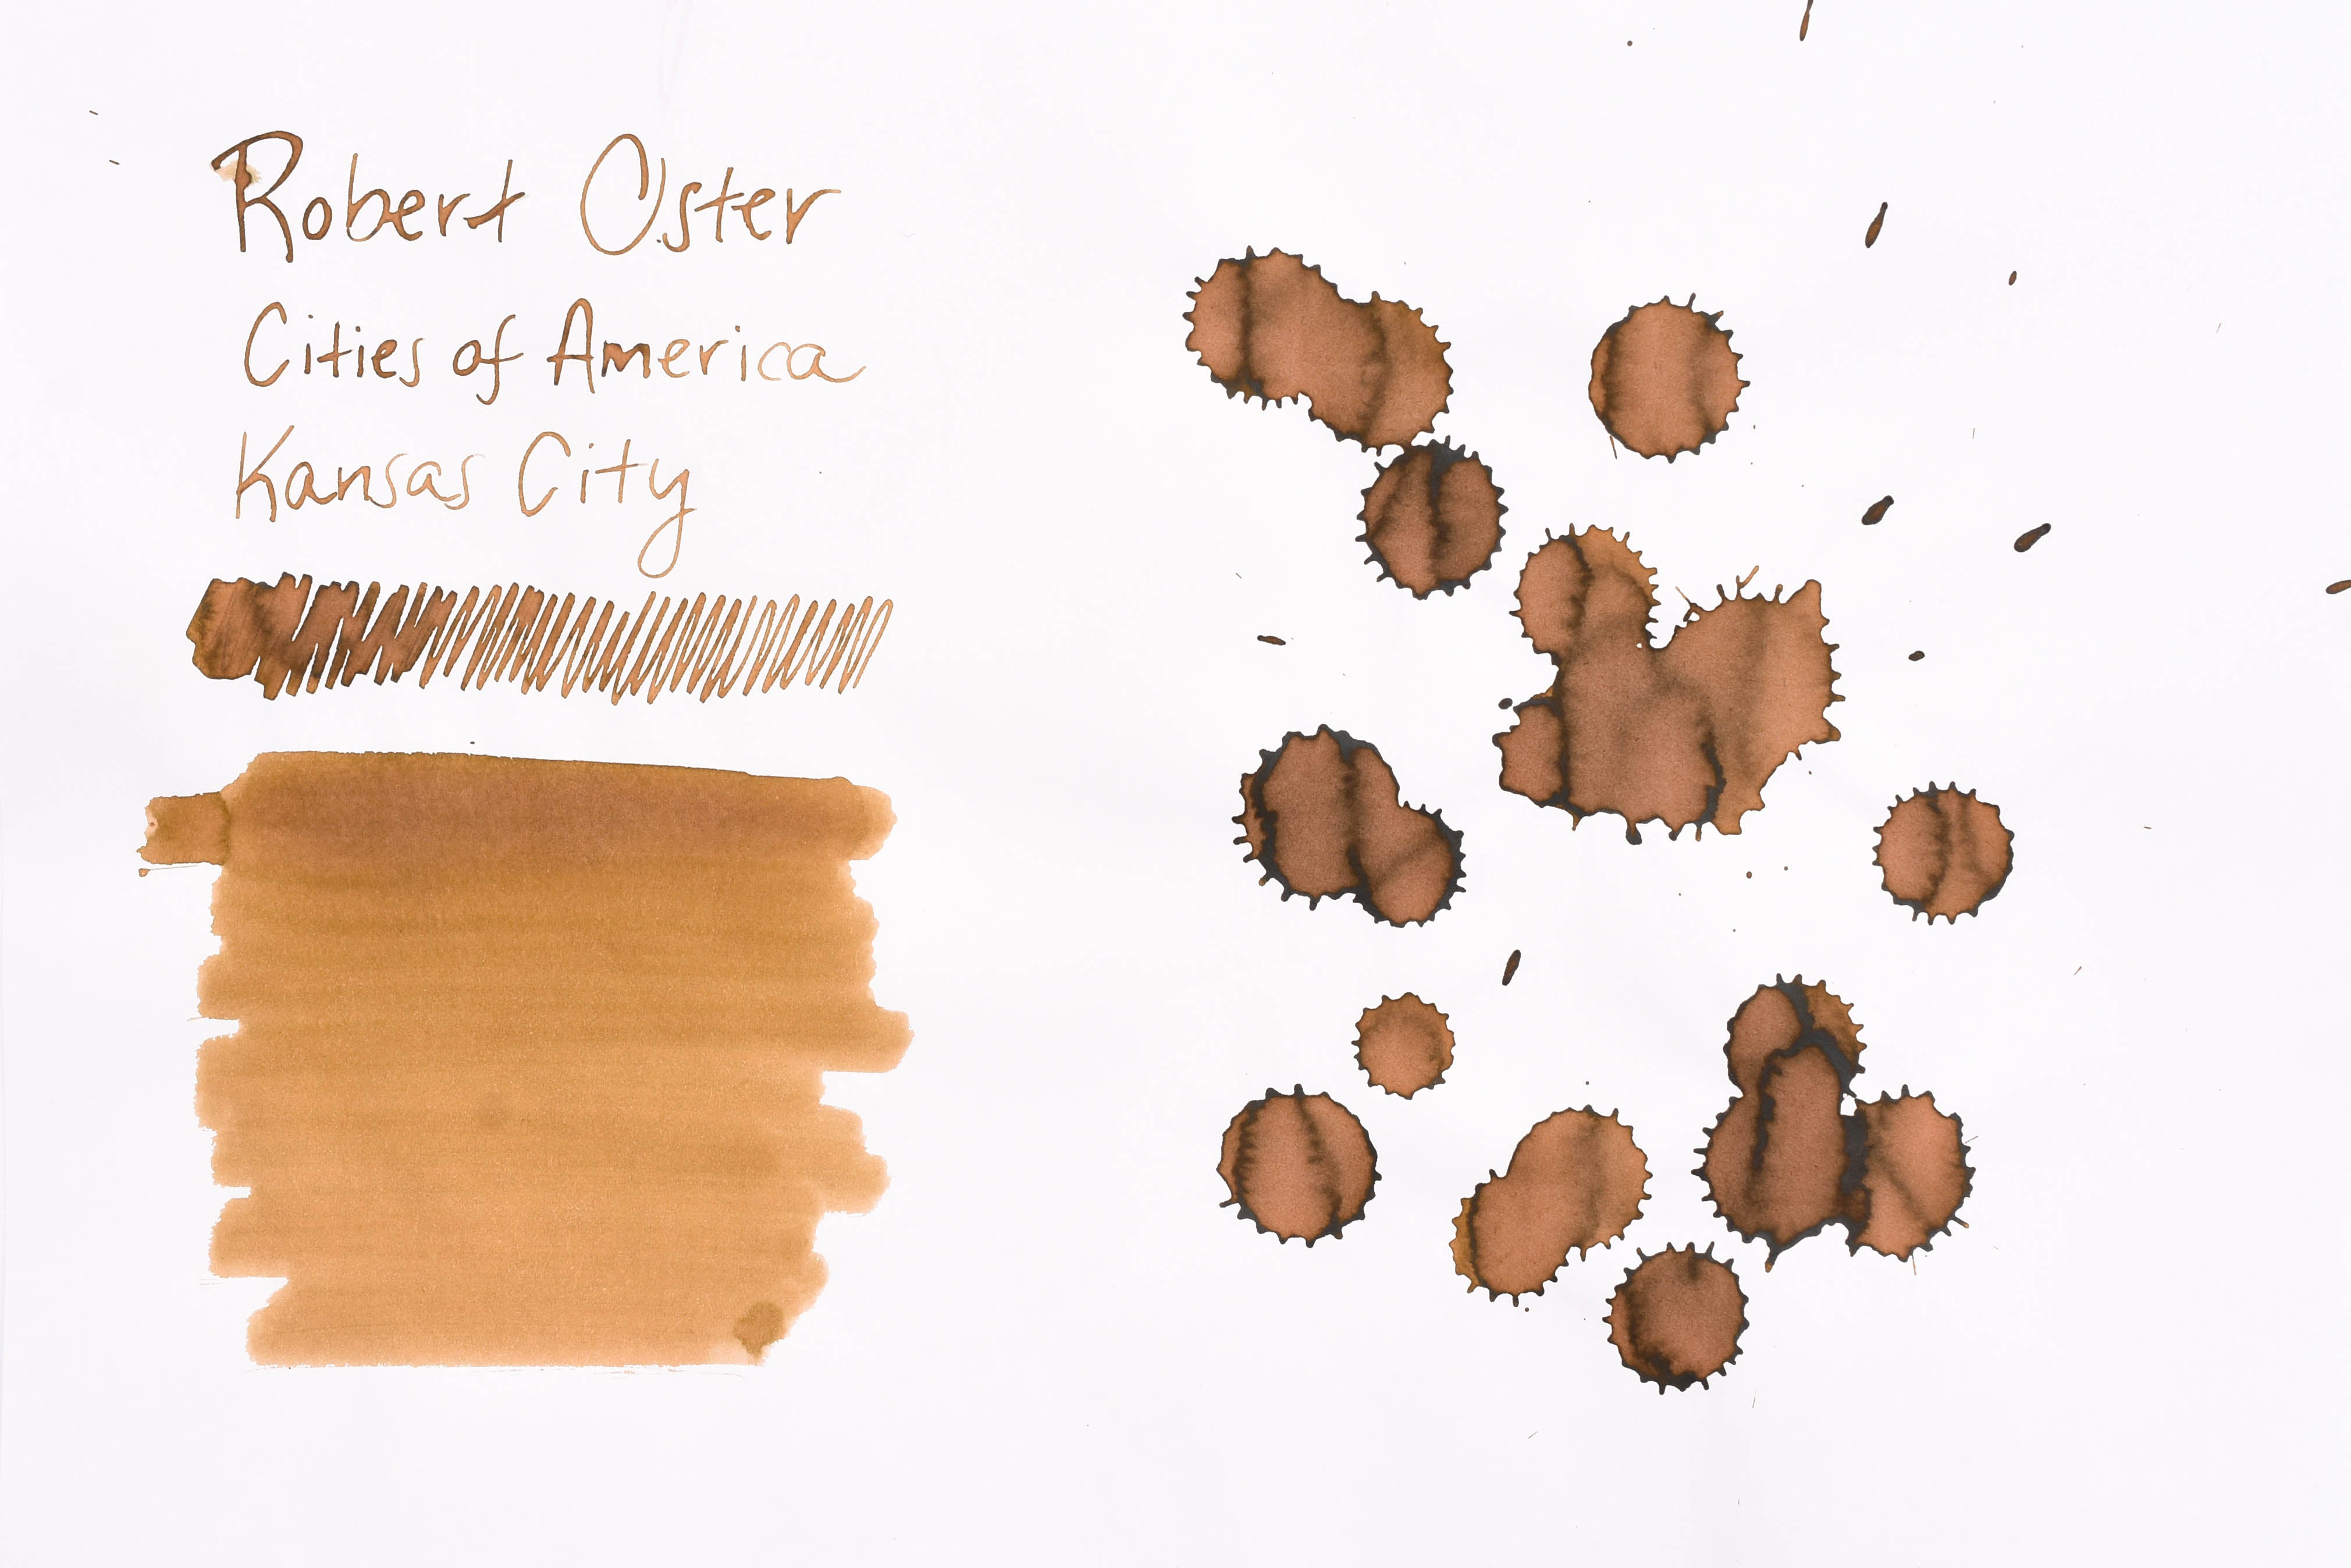 Robert Oster
Cities of America
Kansas City